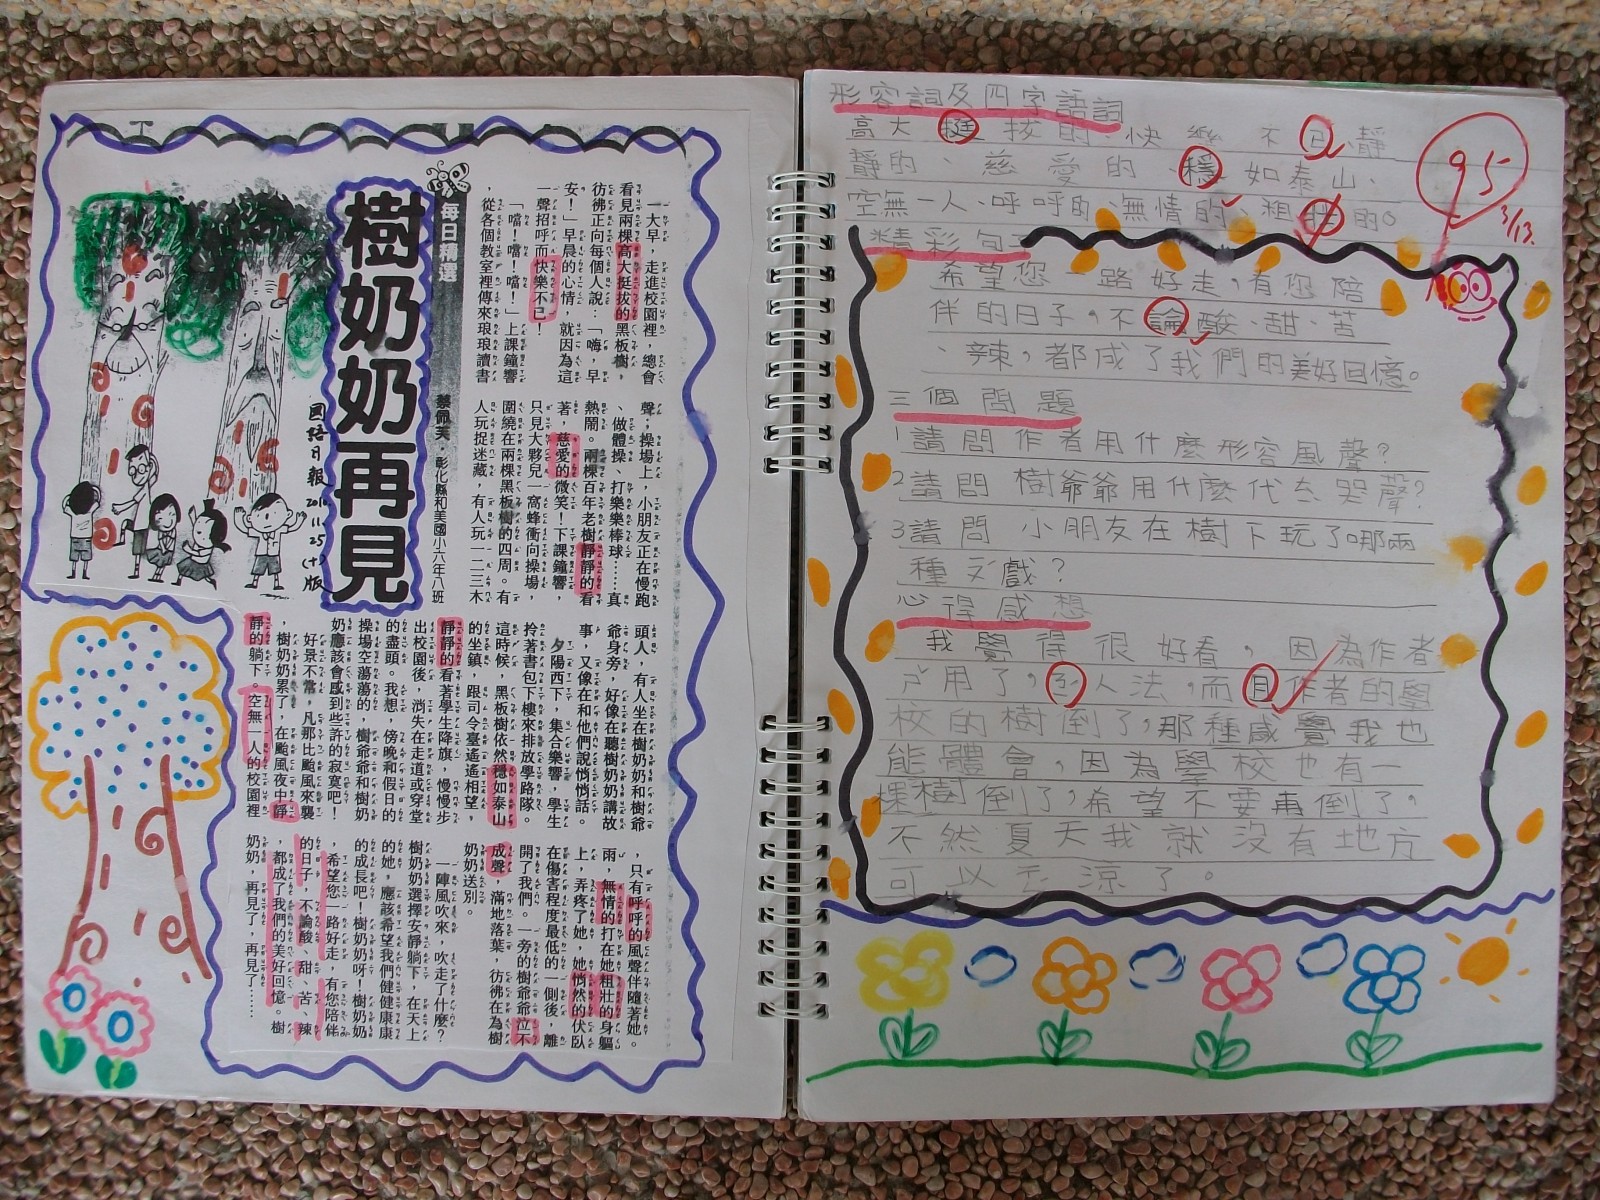 每日精選
樹奶奶再見
蔡佩芙．彰化縣和美國小六年八班
國語日報
2010.11.25(十)版
一大早，走進校園裡，總會
看見兩棵高大挺拔的黑板樹，
彷彿正向每個人說：「嗨，早
安！」早晨的心情，就因為這
一聲招呼而快樂不已！
「噹！噹！噹！」上課鐘響
，從各個教室裡傳來琅琅讀書
聲；操場上，小朋友正在慢跑
、做體操、打樂樂棒球……真
熱鬧。兩棵百年老樹靜靜的看
著，慈愛的微笑！下課鐘響，
只見大夥兒一窩蜂衝向操場，
圍繞在兩棵黑板樹的四周。有
人玩捉迷藏，有人玩一二三木
頭人，有人坐在樹奶奶和樹爺
爺身旁，好像在聽樹奶奶講故
事，又像在和他們說悄悄話。
夕陽西下，集合樂響，學生
拎著書包下樓來排放學路隊。
這時候，黑板樹依然穩如泰山
的坐鎮，跟司令臺遙遙相望，
靜靜的看著學生降旗，慢慢步
出校園後，消失在走道或穿堂
的盡頭。我想，傍晚和假日的
操場空蕩蕩的，樹爺爺和樹奶
奶應該會感到些許的寂寞吧！
好景不常，凡那比颱風來襲
，樹奶奶累了，在颱風夜中靜
靜的躺下。空無一人的校園裡
，只有呼呼的風聲伴隨著她。
雨，無情的打在她粗壯的身軀
上，弄疼了她，她悄然的伏臥
在傷害程度最低的一側後，離
開了我們。一旁的樹爺爺泣不
成聲，滿地落葉，彷彿在為樹
奶奶送別。
一陣風吹來，吹走了什麼？
樹奶奶選擇安靜躺下，在天上
的她，應該希望我們健健康康
的成長吧！樹奶奶呀！樹奶奶
，希望您一路好走，有您陪伴
的日子，不論酸、甜、苦、辣
，都成了我們的美好回憶。樹
奶奶，再見了，再見了……
形容詞及四字語詞
高大挺拔的、快樂不已、靜
靜的、慈愛的、穩如泰山、
空無一人、呼呼的、無情的、粗的。
95
3/13
精彩句子
希望您一路好走，有您陪
伴的日子，不論酸、甜、苦
辣，都成了我們的美好回憶。
三個問題
1請問作者用什麼形容風聲？
2請問樹爺爺用什麼代太哭聲？
3請問小朋友在樹下玩了哪兩
種文戲？
心得感想
我覺得很好看，因為作者
用了，人法，而且作者的學
校的樹倒了，那種感覺我也
能體會，因為學校也有一
棵樹倒了，希望不要再倒了，
不然夏天我就沒有地方
可以去涼了。